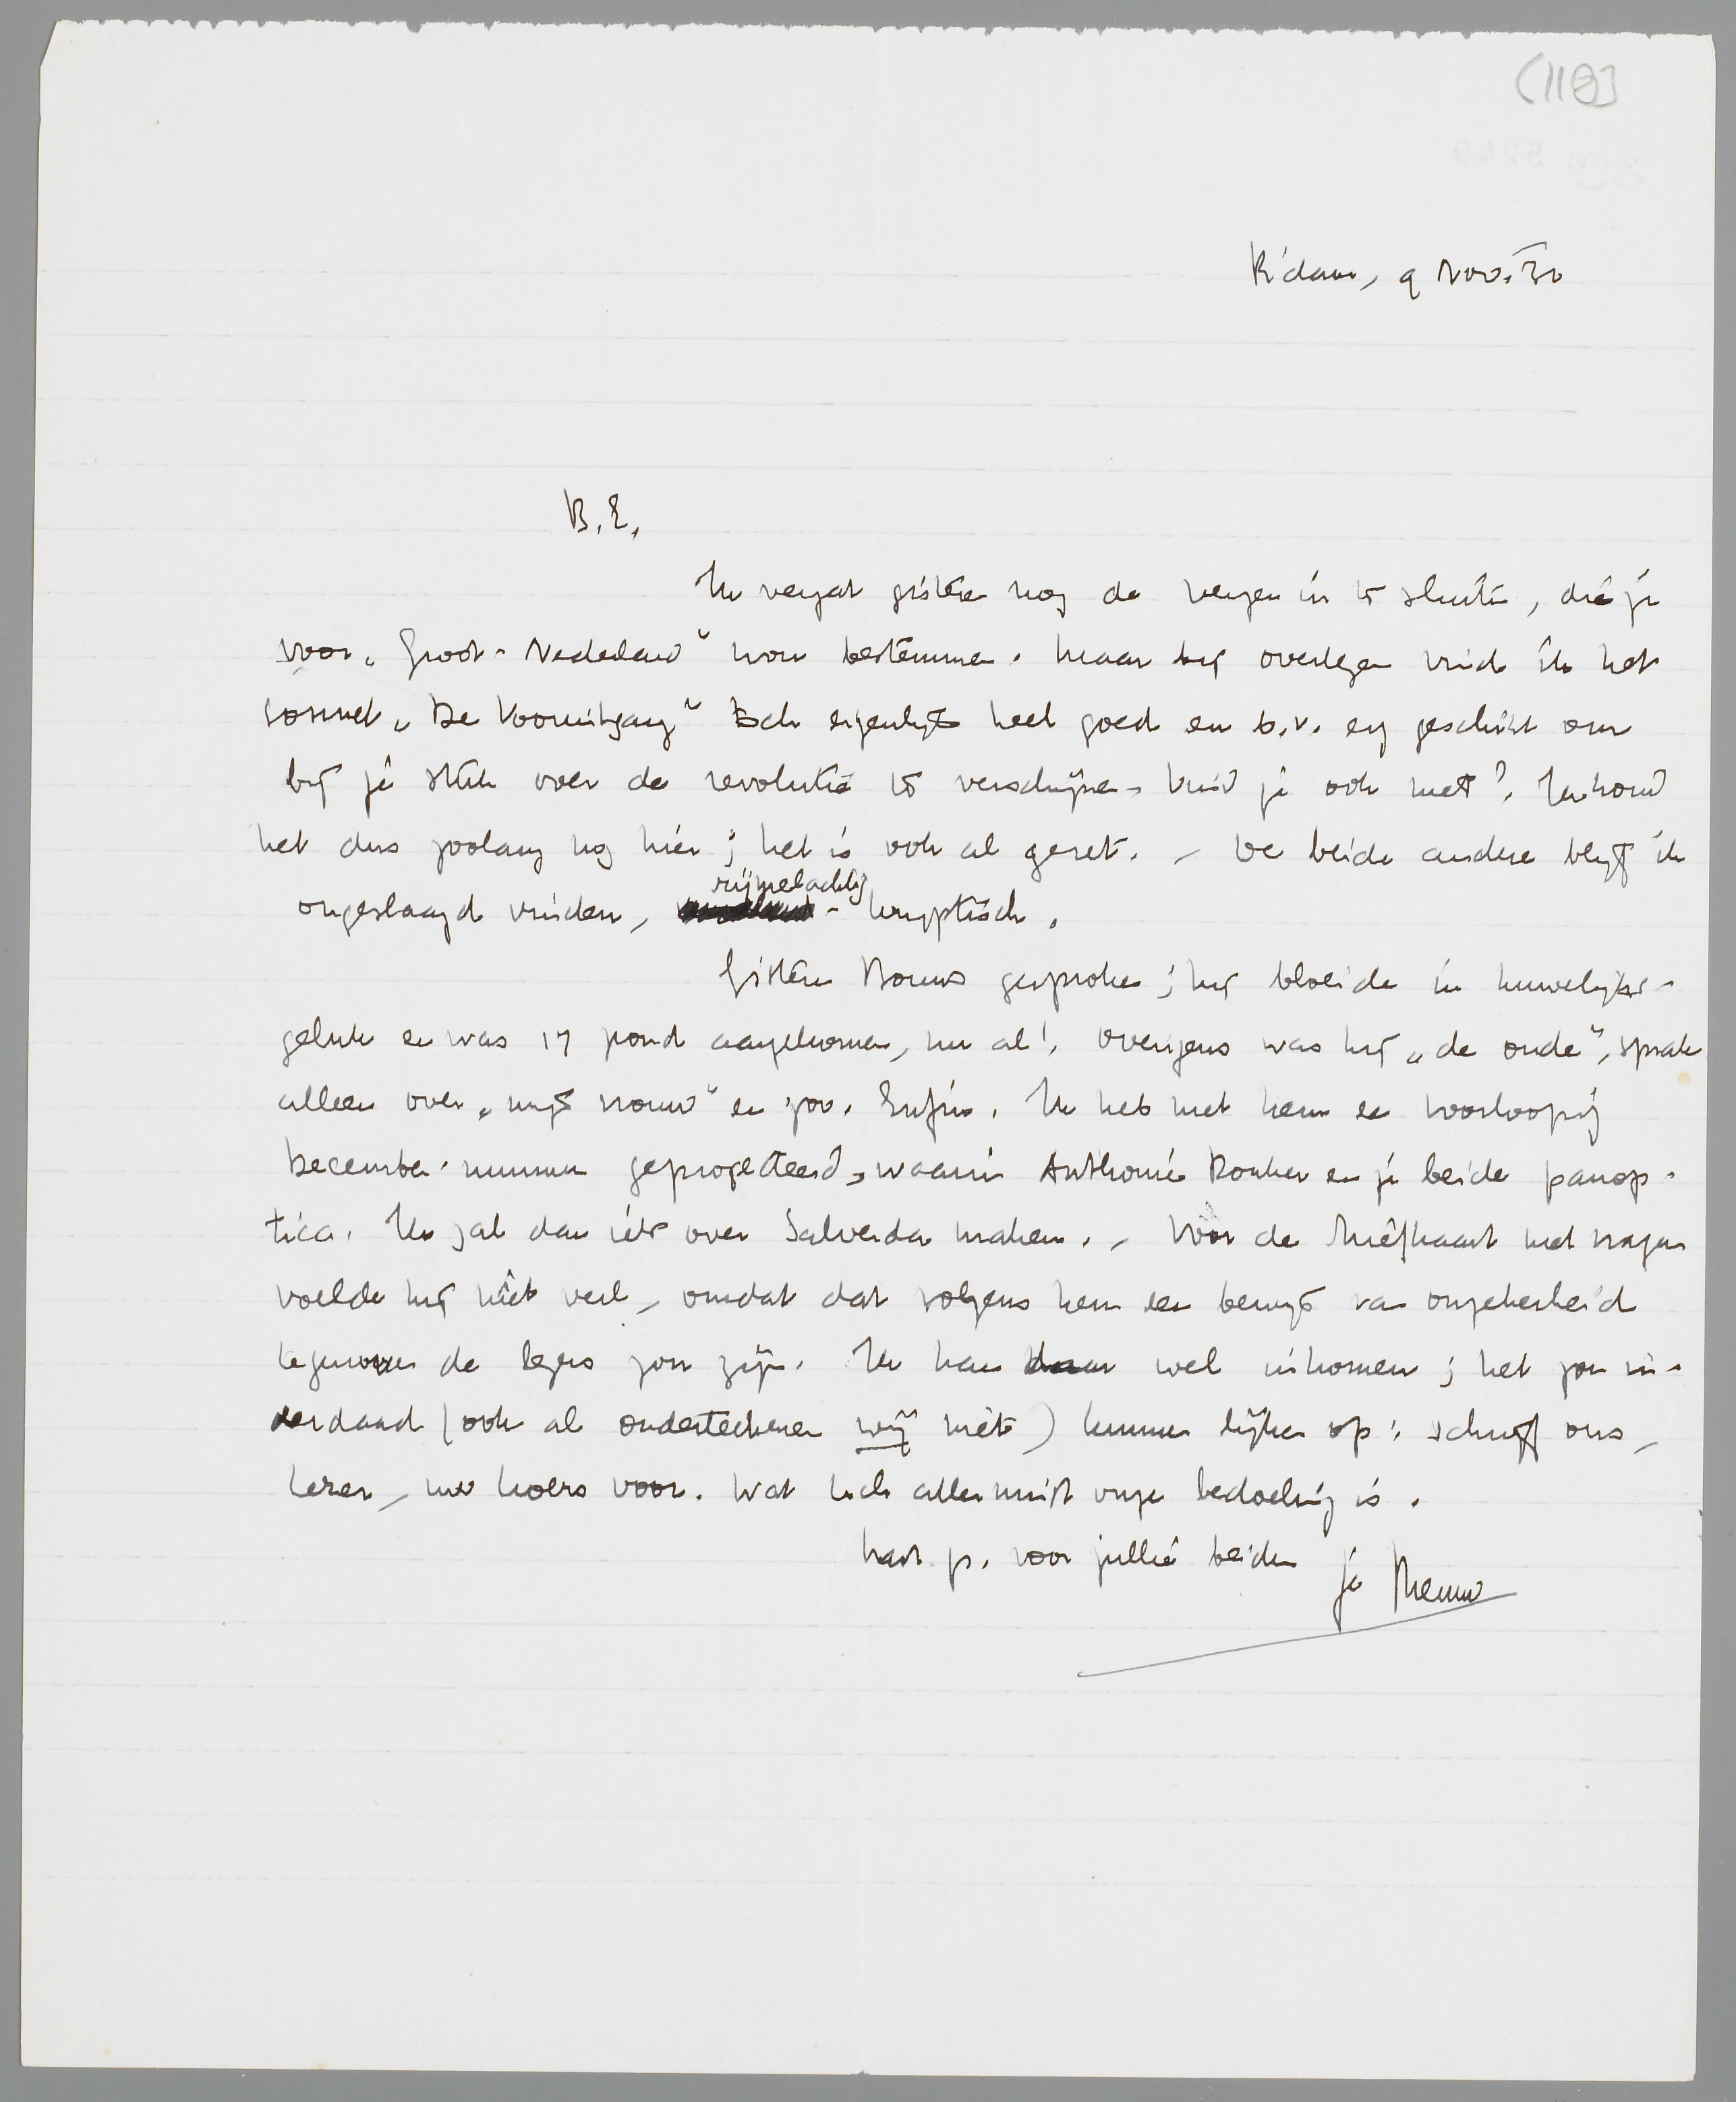 (118)
R'dam, 9 Nov. '32
B.E.,
Ik vergat gisteren nog de verzen in te sluiten, die je
voor „Groot-Nederland" wou bestemmen. Maar bij overlezen vind ik het
sonnet „De Vooruitgang" toch eigenlijk heel goed en b.v. erg geschikt om
bij je stuk over de revolutie te verschijnen. Vind je ook niet? Ik houd
het dus zoolang nog hier; het is ook al gezet. – De beide andere blijf ik
ongeslaagd vinden, rijmelachtig - kryptisch.
Gisteren Bouws gesproken; hij bloeide in huwelijks-
geluk en was 17 pond aangekomen, nu al! Overigens was hij „de oude", sprak
alleen over „mijn vrouw" en zoo. Enfin. Ik heb met hem een voorloopig
December-nummer geprojecteerd, waarin Anthonie Donker en je beide panop-
tica. Ik zal dan iets over Salverda maken. – Voor de briefkaart met vragen
voelde hij niet veel, omdat dat volgens hem een bewijs van onzekerheid
tegenover de lezers zou zijn. Ik kan daar wel inkomen; het zou in-
derdaad (ook al onderteekenen wij niet) kunnen lijken op: schrijf ons,
lezer, uw koers voor. Wat toch allerminst onze bedoeling is.
hart. gr. voor jullie beiden je Menno